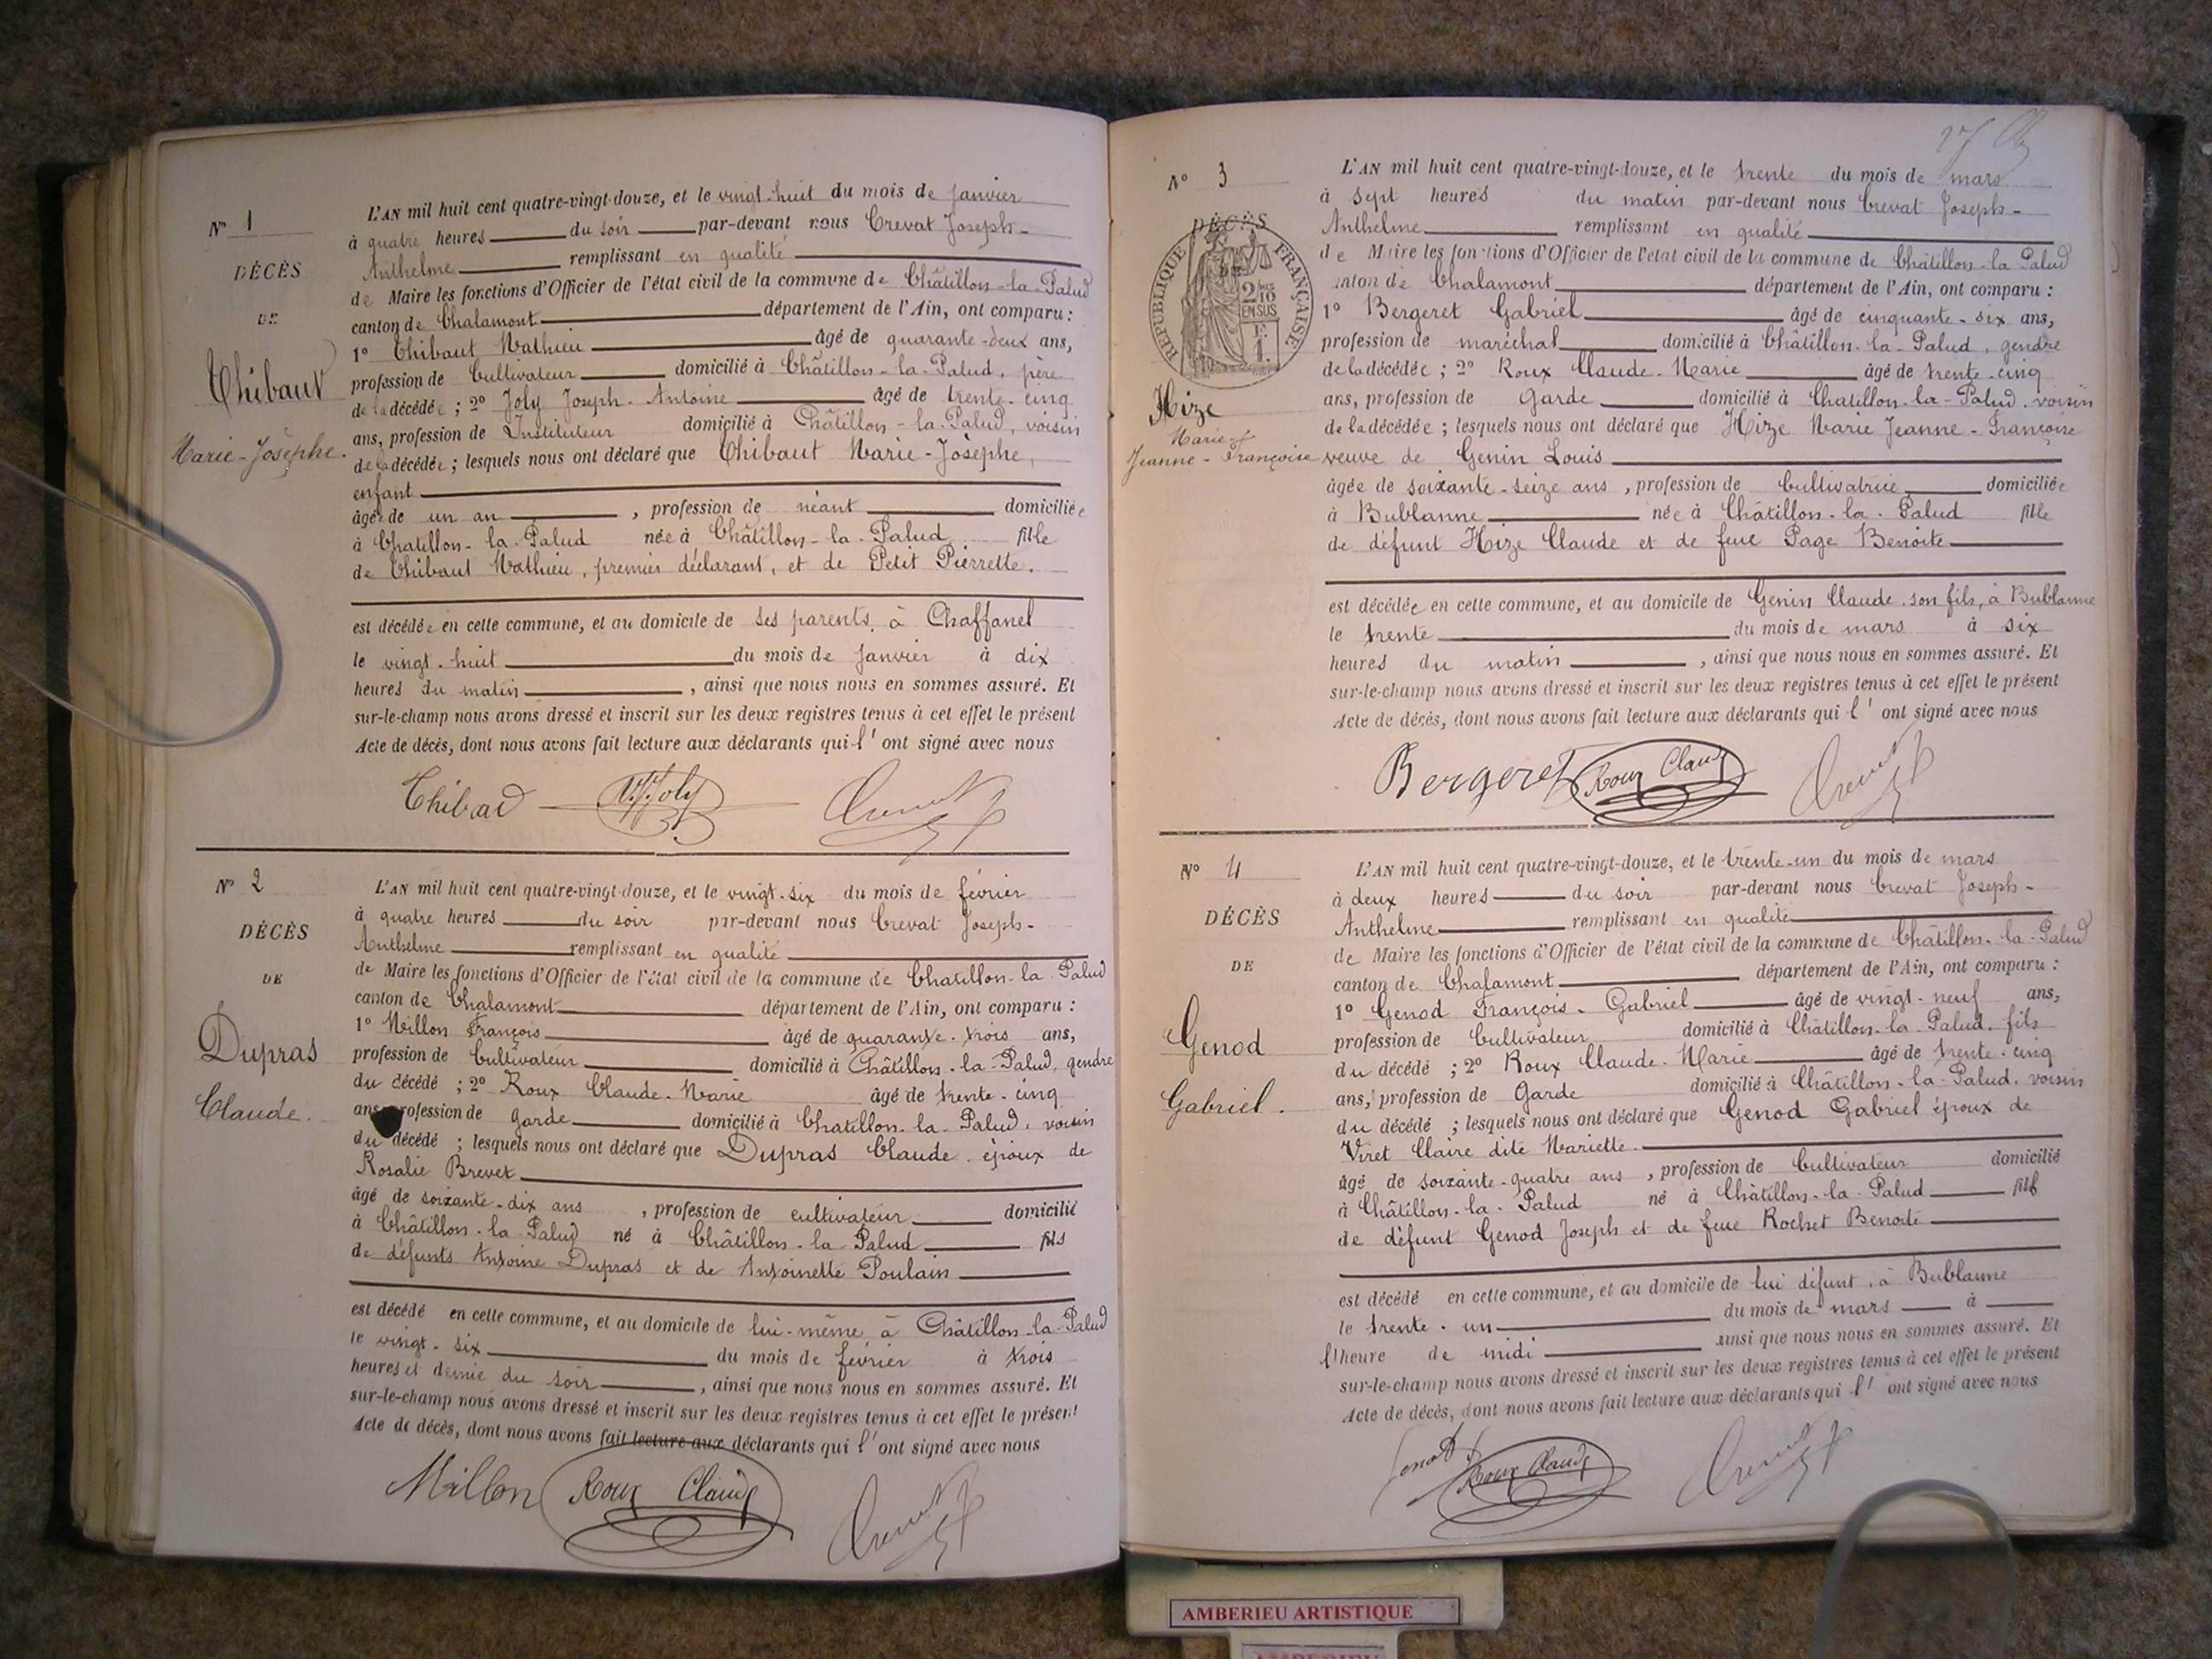 N° 1
DÉCÈS
DE
Thibaut
Marie-Josèphe.
L'AN mil huit cent quatre-vingt-douze, et le vingt-huit du mois de Janvier
à quatre heures du soir par-devant nous Crevat Joseph-
Anthelme remplissant en qualité
de Maire les fonctions d'Officier de l'état civil de la commune de Châtillon-la-Palud
canton de Chalamont département de l'Ain, ont comparu :
1° Thibaut Mathieu âgé de quarante-deux ans,
profession de Cultivateur domicilié à Châtillon-la-Palud, père
de la décédée ; 2° Joly Joseph-Antoine âgé de trente-cinq
ans, profession de Instituteur domicilié à Châtillon-la-Palud, voisin
de la décédée ; lesquels nous ont déclaré que Thibaut Marie-Josèphe,
enfant
âgée de un an , profession de néant domiciliée
à Chatillon-la-Palud née à Châtillon-la-Palud fille
de Thibaut Mathieu, premier déclarant, et de Petit Pierrette.
est décédée en cette commune, et au domicile de ses parents, à Chaffanel
le vingt-huit du mois de Janvier à dix
heures du matin , ainsi que nous nous en sommes assuré. Et
sur-le-champ nous avons dressé et inscrit sur les deux registres tenus à cet effet le présent
Acte de décès, dont nous avons fait lecture aux déclarants qui l' ont signé avec nous
Thibad Joly Crevat
N° 2
DÉCÈS
DE
Dupras
Claude.
L'AN mil huit cent quatre-vingt-douze, et le vingt-six du mois de février
à quatre heures du soir par-devant nous Crevat Joseph-
Anthelme remplissant en qualité
de Maire les fonctions d'Officier de l'état civil de la commune de Chatillon-la-Palud
canton de Chalamont département de l'Ain, ont comparu :
1° Millon François âgé de quarante-trois ans,
profession de Cultivateur domicilié à Châtillon-la-Palud, gendre
du décédé ; 2° Roux Claude-Marie âgé de trente-cinq
ans, profession de garde domicilié à Chatillon-la-Palud, voisin
du décédé ; lesquels nous ont déclaré que Dupras Claude, époux de
Rosalie Brevet
âgé de soixante-dix ans , profession de cultivateur domicilié
à Châtillon-la-Palud né à Châtillon-la-Palud fils
de défunts Antoine Dupras et de Antoinette Poulain
est décédé en cette commune, et au domicile de lui-même, à Châtillon-la-Palud
le vingt-six du mois de février à trois
heures et demie du soir , ainsi que nous nous en sommes assuré. Et
sur-le-champ nous avons dressé et inscrit sur les deux registres tenus à cet effet le présent
Acte de décès, dont nous avons fait lecture aux déclarants qui l' ont signé avec nous
Millon Roux Claude Crevat
N° 3
DÉCÈS
RÉPUBLIQUE FRANÇAISE
2/10
EN SUS
F.
1.
Hize
Marie-
Jeanne-Françoise
L'AN mil huit cent quatre-vingt-douze, et le trente du mois de mars
à sept heures du matin par-devant nous Crevat Joseph-
Anthelme remplissant en qualité
de Maire les fonctions d'Officier de l'état civil de la commune de Châtillon-la-Palud
canton de Chalamont département de l'Ain, ont comparu :
1° Bergeret Gabriel âgé de cinquante-six ans,
profession de maréchal domicilié à Châtillon-la-Palud, gendre
de la décédée ; 2° Roux Claude-Marie âgé de trente-cinq
ans, profession de Garde domicilié à Chatillon-la-Palud, voisin
de la décédée ; lesquels nous ont déclaré que Hize Marie Jeanne-Françoise
veuve de Genin Louis
âgée de soixante-seize ans , profession de Cultivatrice domiciliée
à Bublanne née à Châtillon-la-Palud fille
de défunt Hize Claude et de feue Page Benoîte
est décédée en cette commune, et au domicile de Genin Claude, son fils, à Bublanne
le trente du mois de mars à six
heures du matin , ainsi que nous nous en sommes assuré. Et
sur-le-champ nous avons dressé et inscrit sur les deux registres tenus à cet effet le présent
Acte de décès, dont nous avons fait lecture aux déclarants qui l' ont signé avec nous
Bergeret Roux Claude Crevat
N° 4
DÉCÈS
DE
Genod
Gabriel.
L'AN mil huit cent quatre-vingt-douze, et le trente-un du mois de mars
à deux heures du soir par-devant nous Crevat Joseph-
Anthelme remplissant en qualité
de Maire les fonctions d'Officier de l'état civil de la commune de Châtillon-la-Palud
canton de Chalamont département de l'Ain, ont comparu :
1° Genod François-Gabriel âgé de vingt-neuf ans,
profession de Cultivateur domicilié à Châtillon-la-Palud, fils
du décédé ; 2° Roux Claude-Marie âgé de trente-cinq
ans, profession de Garde domicilié à Châtillon-la-Palud, voisin
du décédé ; lesquels nous ont déclaré que Genod Gabriel époux de
Viret Claire dite Mariette
âgé de soixante-quatre ans , profession de Cultivateur domicilié
à Châtillon-la-Palud né à Châtillon-la-Palud fils
de défunt Genod Joseph et de feue Rochet Benoite
est décédé en cette commune, et au domicile de lui défunt, à Bublanne
le trente-un du mois de mars à
l'heure de midi ainsi que nous nous en sommes assuré. Et
sur-le-champ nous avons dressé et inscrit sur les deux registres tenus à cet effet le présent
Acte de décès, dont nous avons fait lecture aux déclarants qui l' ont signé avec nous
Genod Roux Claude Crevat
AMBERIEU ARTISTIQUE
AMBERIEU